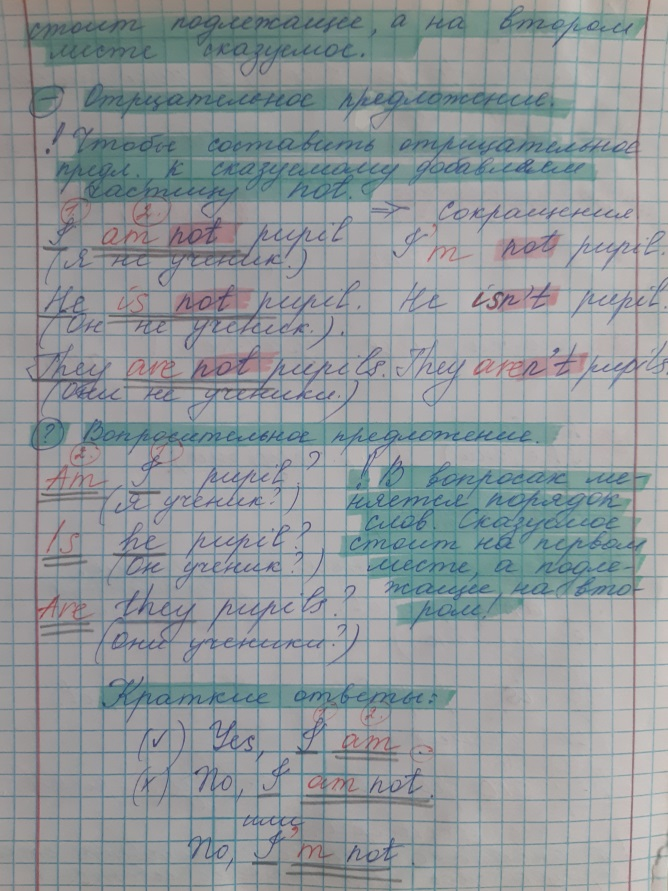 стоит подлежащее, а на втором
месте сказуемое.
(-) Отрицательное предложение.
! Чтобы составить отрицательное
предл. к сказуемому добавляем
частицу not.
1 2. => Сокращения
I am not pupil I'm not pupil.
(Я не ученик.)
He is not pupil. He isn't pupil
(Он не ученик.).
They are not pupils. They aren't pupils.
(Они не ученики.)
(?) Вопросительное предложение.
2. 1
Am I pupil?
(Я ученик?)
Is he pupil?
(Он ученик?)
Are they pupils?
(Они ученики?)
! В вопросах ме-
няется порядок
слов. Сказуемое
стоит на первом
месте, а подле-
жащие, на вто-
ром!
Краткие ответы:
1 2.
(v) Yes, I am.
(x) No, I am not.
или
No, I'm not.